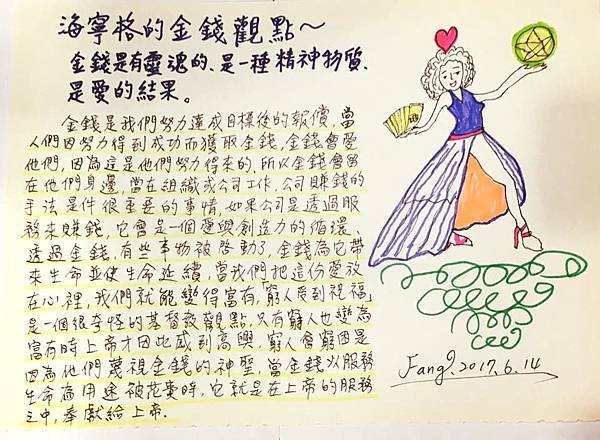 海寧格的金錢觀點~
金錢是有靈魂的、是一種精神物質、
是愛的結果。
金錢是我們努力達成目標後的報償,當
人們因努力得到成功而獲取金錢,金錢會愛
他們,因為這是他們努力得來的、所以金錢會留
在他們身邊,當在組織或公司工作,公司賺錢的
手法是件很重要的事情,如果公司是透過服
務來賺錢,它會是一個愛與創造力的循環、
透過金錢,有些事物被啓動了,金錢為它帶
來生命並使生命延續,當我們把這份愛放
在心裡,我們就能變得富有,「窮人受到祝福」
是一個很奇怪的基督教觀點,只有窮人也變為
富有時上帝才因此感到高興,窮人會窮困是
因為他們蔑視金錢的神聖,當金錢以服務
生命為用途被花費時,它就是在上帝的服務
之中,奉獻給上帝.
Fang.2017.6.14